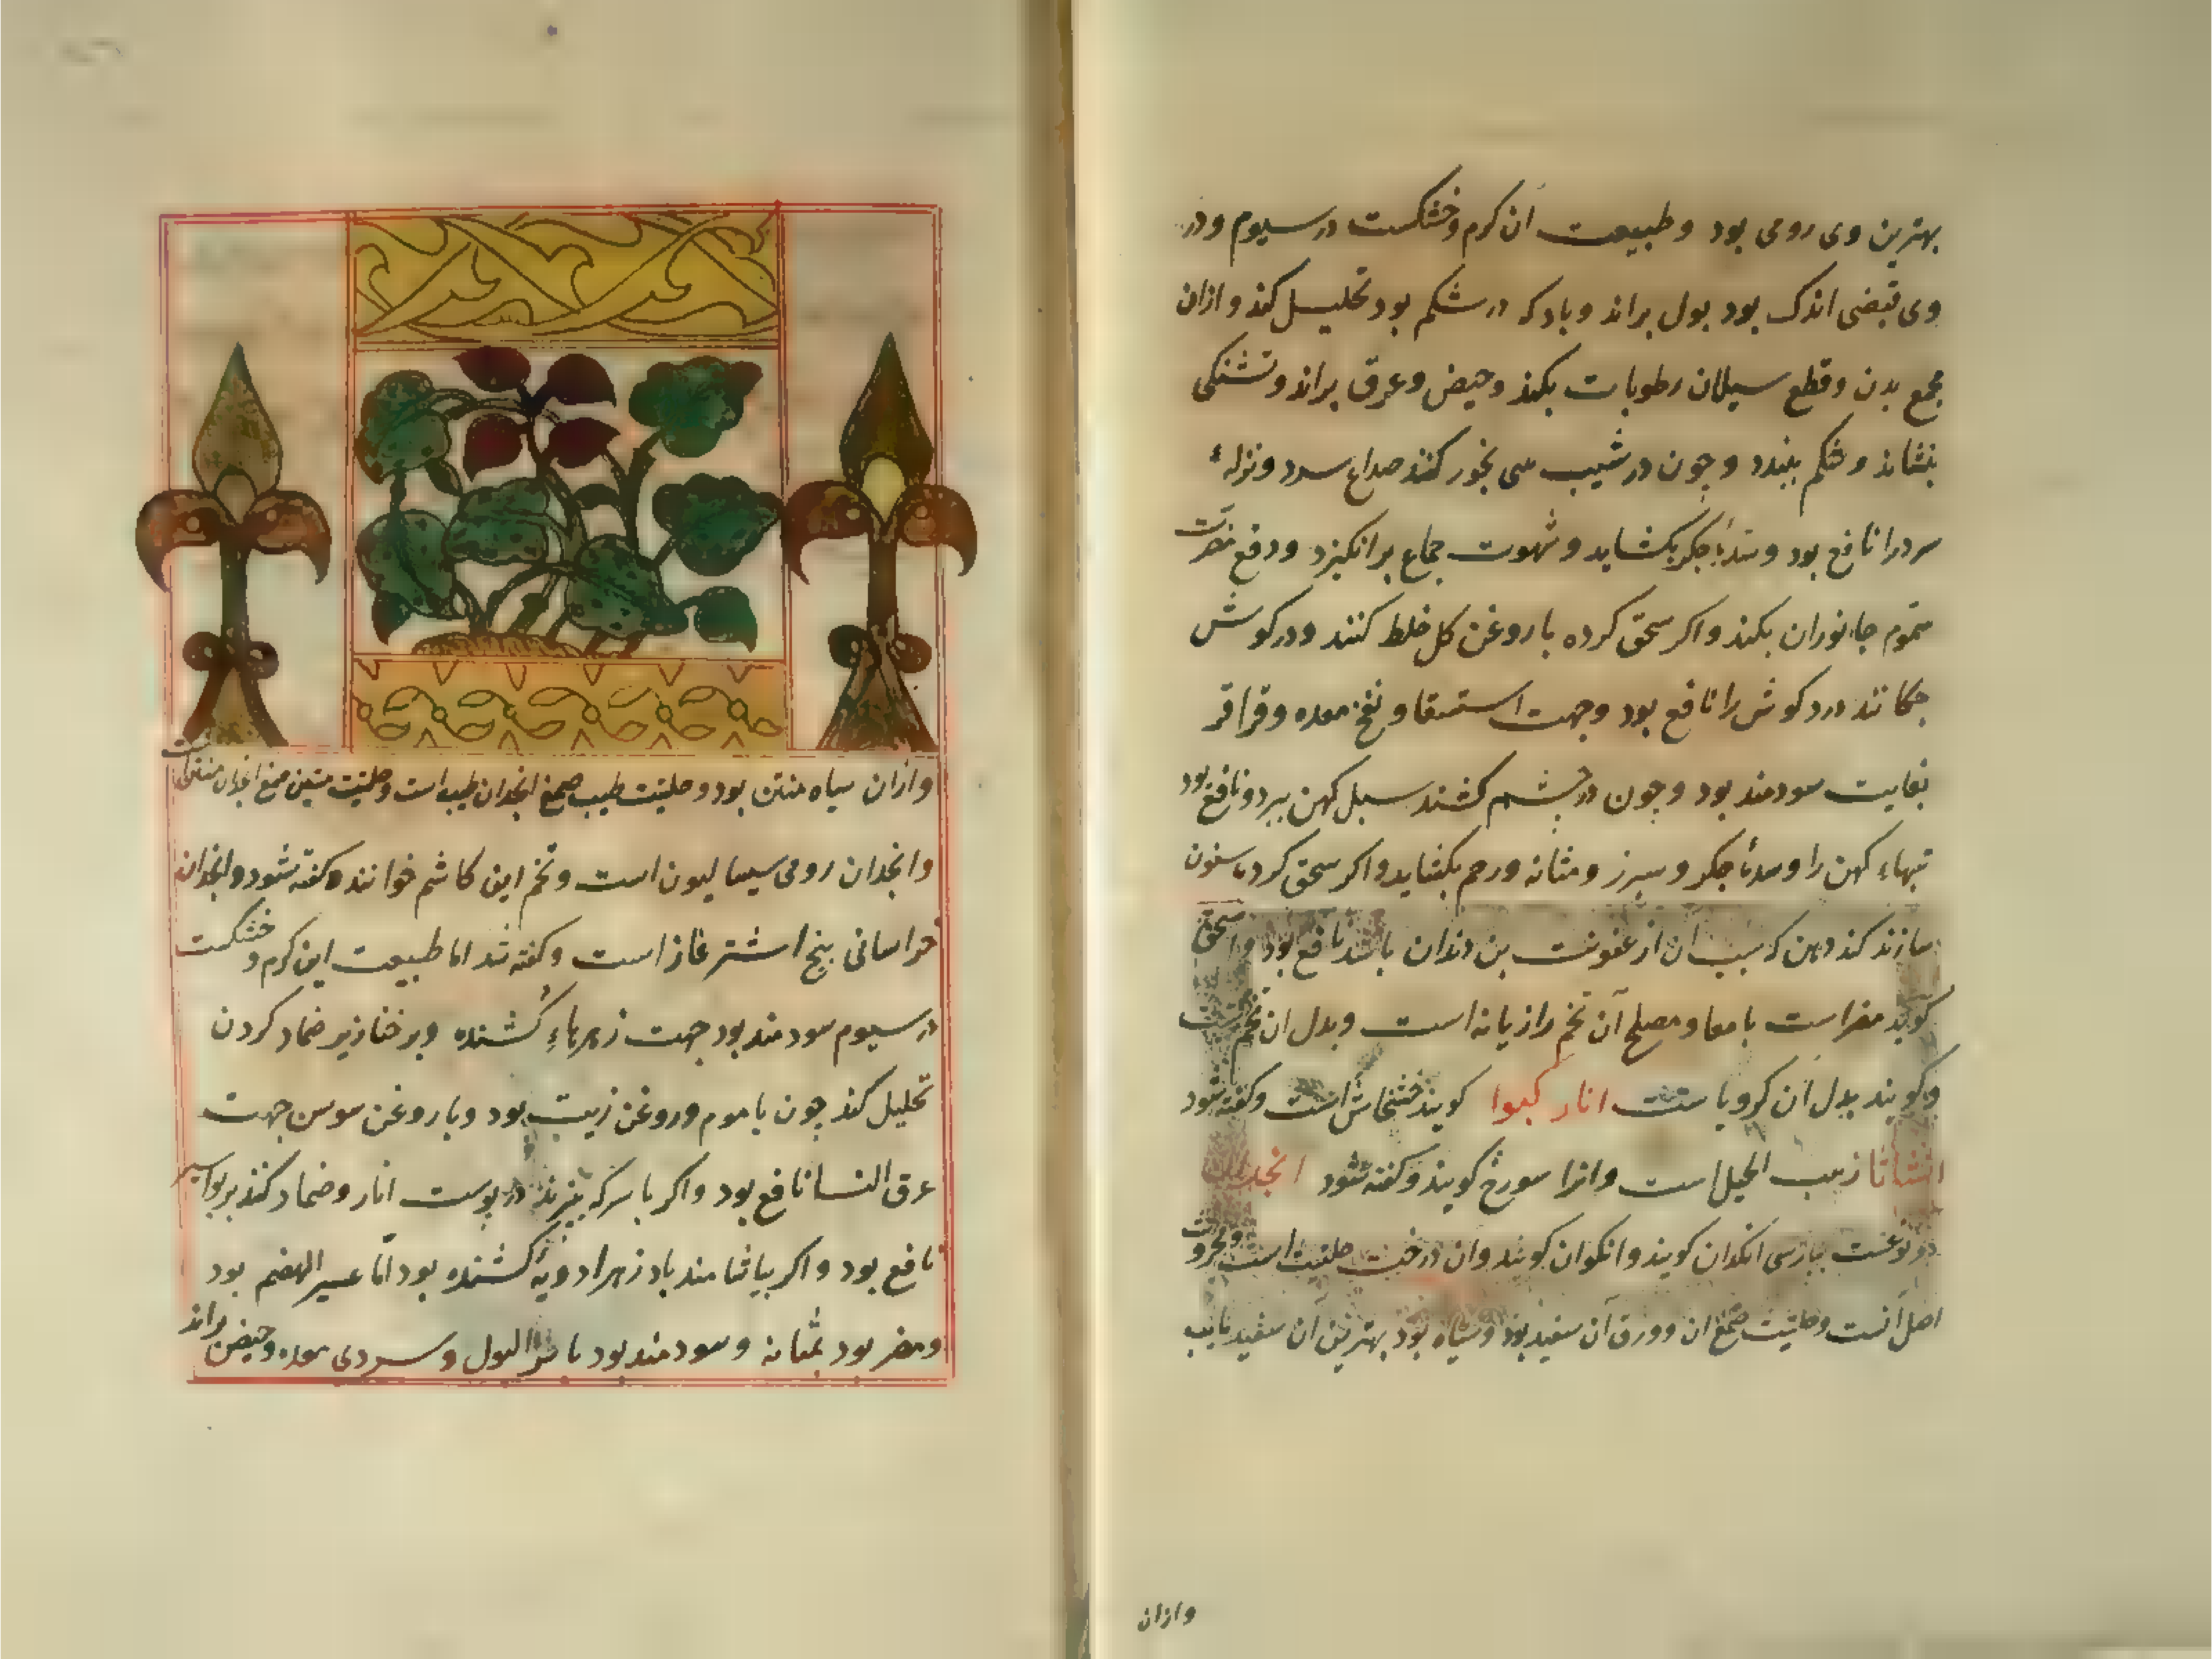 بهترین وی رومی بود و طبیعت آن کرم و خشکست در سیوم و در
وی قبضی اندک بود بول براند و باد که در شکم بود تحلیل کند و ازان
مجمع بدن و قطع سیلان رطوبات بکند و حیض و عرق براند و تشنکی
بنشاند و شکم ببندد و چون در شیب می بخور کنند صداع سرد و نزلهٔ
سرد را نافع بود و سدهٔ جکر بکشاید و شهوت جماع برانکیزد و دفع مضرت
سموم جانوران بکند و اکر سحق کرده با روغن کل خلط کنند و در کوش
چکانند درد کوش را نافع بود و جهت استسقا و نفخ معده و قراقر
بغایت سودمند بود و چون در چشم کشند سبل کهن ببرد و نافع بود
تبهاء کهن را و سدهٔ جکر و سپرز و مثانه و رحم بکشاید و اکر سحق کرده سنون
سازند کند دهن که سبب آن از عفونت بن دندان باشد نافع بود و اسحق
کوید مضر است بامعا و مصلح آن تخم رازیانه است و بدل آن تخم
و کویند بدل آن کرویاست انار کیوا کویند خشخاش است و کفته شود
زبیب الجبل است و انرا مویزج کویند و کفته شود انجدان
دو نوعست بپارسی انکدان کویند و انکوان کویند و ان درخت حلتیت است و محروت
اصل آنست و حلتیت صمغ ان و ورق آن سفید بود و سیاه بود بهترین آن سفید
وازان
وازان سیاه منتن بود و حلتیت طیب صمغ انجدان طیب است و حلتیت منتن صمغ انجدان منتن است
و انجدان رومی سیسالیون است و تخم این کاشم خوانند و کفته شود و انجدان
خراسانی بیخ اشترغاز است و کفته شد اما طبیعت این کرم و خشکست
در سیوم سودمند بود جهت زهرهاء کشنده و بر خنازیر ضماد کردن
تحلیل کند چون با موم و روغن زیت بود و با روغن سوسن جهت
عرق النسا نافع بود و اکر با سرکه بپزند در پوست انار و ضماد کنند بر بواسیر
نافع بود و اکر بیاشامند بادزهر ادویهٔ کشنده بود امّا عسیر الهضم بود
و مضر بود بمثانه و سودمند بود با البول و سردی معده و حیض براند